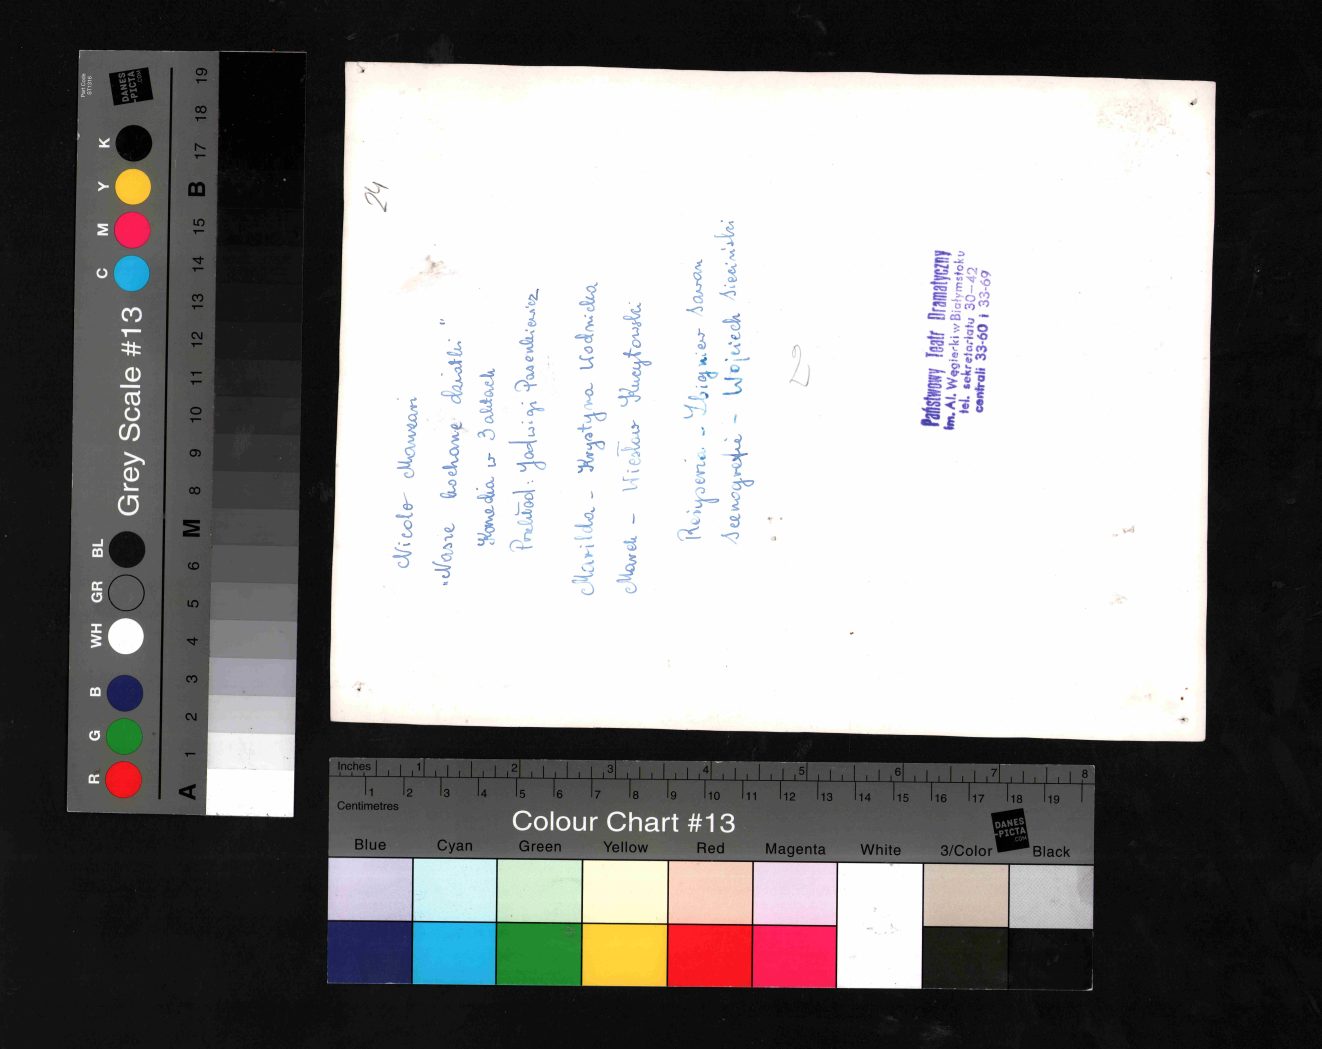 24
Nicolo Manzari
"Nasze kochane dziatki"
Komedia w 3 aktach
Przekład: Jadwigi Pasenkiewicz
Marilda - Krystyna Wodnicka
Marek - Wiesław Kucytowski
Reżyseria - Zbigniew Sawan
Scenografia - Wojciech Sieciński
Państwowy Teatr Dramatyczny
im. Al. Węgierki w Białymstoku
tel. sekretariatu 30-42
centrali 33-60 i 33-69
Part Code
ST1316
DANES
-PICTA
.COM
Grey Scale #13
R G B WH GR BL C M Y K
A 1 2 3 4 5 6 M 8 9 10 11 12 13 14 15 B 17 18 19
Inches 1 2 3 4 5 6 7 8
1 2 3 4 5 6 7 8 9 10 11 12 13 14 15 16 17 18 19
Centimetres
Colour Chart #13
DANES
-PICTA
.COM
Blue Cyan Green Yellow Red Magenta White 3/Color Black